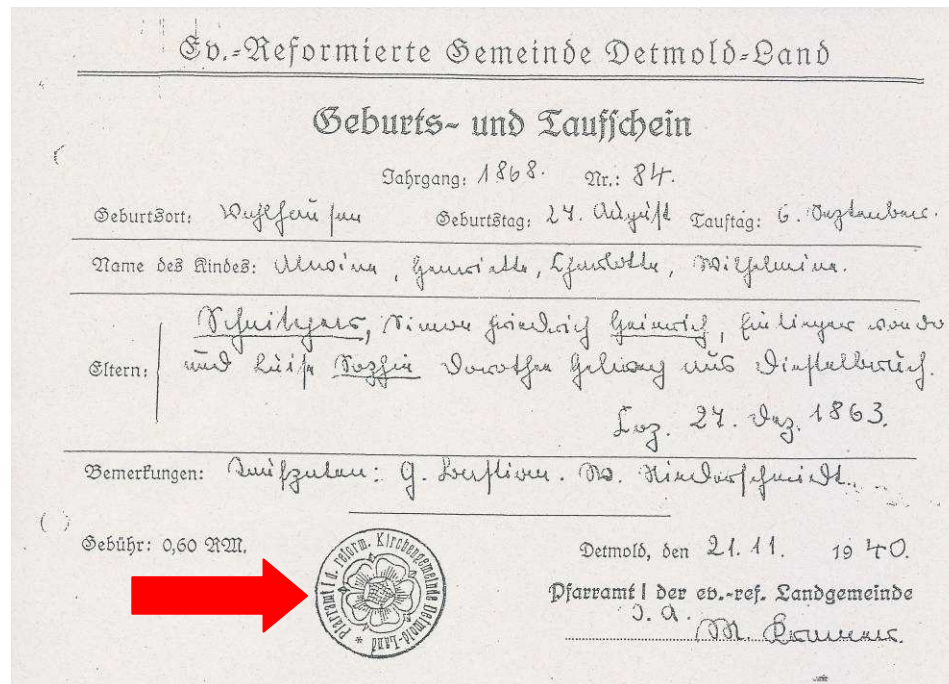 Ev.-Reformierte Gemeinde Detmold-Land
Geburts- und Taufschein
Jahrgang: 1868. Nr.: 84.
Geburtsort: Geburtstag: 24. August Tauftag: 6. September.
Name des Kindes: Alwine, Henriette, Charlotte, Wilhelmine.
Simon Friedrich Heinrich, Einlieger
Eltern: und Luise Sophie Dorothea aus Diestelbruch.
Cop. 27. Dez. 1863.
Bemerkungen: Taufzeugen: G. Bastian. W. Niederschmidt.
Gebühr: 0,60 RM.
Pfarramt I d. reform. Kirchengemeinde Detmold-Land *
Detmold, den 21.11. 1940.
Pfarramt I der ev.-ref. Landgemeinde
I. A.